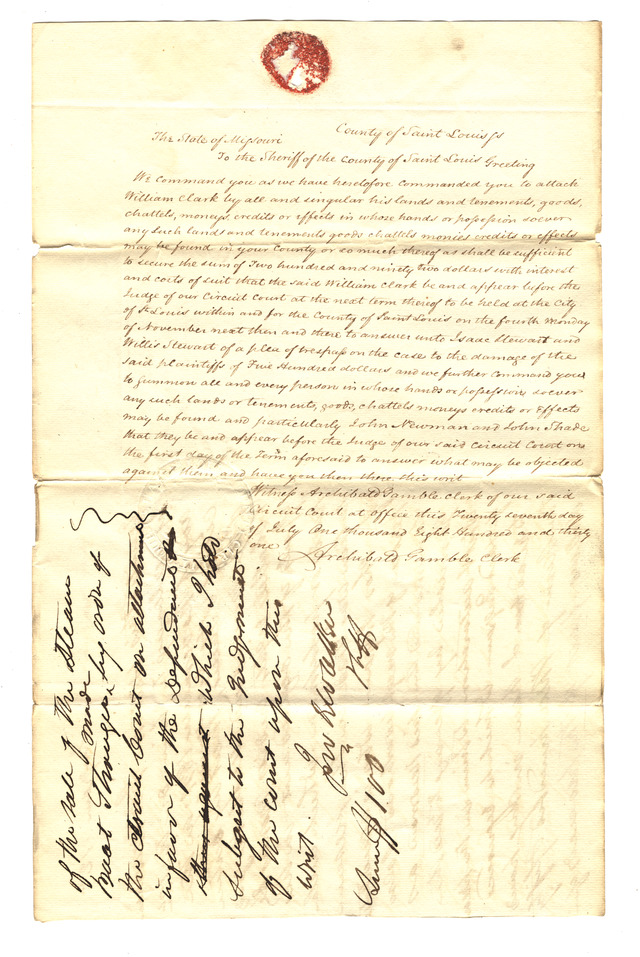 County of Saint Louis ss
The State of Missouri
To the Sheriff of the County of Saint Louis Greeting
We command you as we have heretofore commanded you to attack
William Clark by all and singular his lands and tenements, goods,
chattels, moneys credits or effects in whose hands or possession soever
any such lands and tenements goods chattels monies credits or effects
may be found in your County or so much thereof as shall be sufficient
to secure the sum of Two hundred and ninety two dollars with interest
and costs of suit that the said William Clark be and appear before the
Judge of our Circuit Court at the next term thereof to be held at the City
of St Louis within and for the County of Saint Louis on the fourth Monday
of November next then and there to answer unto Isaac Stewart and
Willis Stewart of a plea of trespass on the case to the damage of the
said plaintiffs of Five Hundred dollars and we further command you
to summon all and every person in whose hands or possession soever
any such lands or tenements, goods, chattels moneys credits or Effects
may be found and particularly John Newman and John Shade
that they be and appear before the Judge of our said Circuit Court on
the first day of the Term aforesaid to answer what may be objected
against them and have you then there this writ
Witness Archibald Gamble clerk of our said
Circuit Court at office this Twenty seventh day
of July One thousand Eight Hundred and thirty
one
Archibald Gamble Clerk
of the sale of the Steam
made
Boat by order of
the Circuit Court on attachment
in favor of the Defendant
which I hold
Subject to the Judgment
of the Court upon this
writ.
Jno K Walker
Shff
100